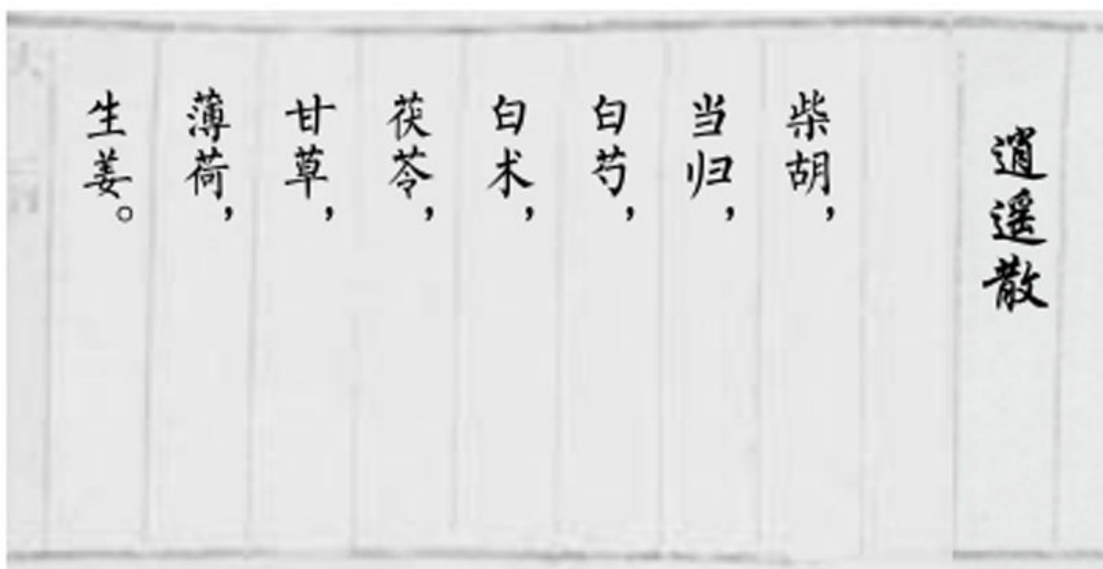 逍遥散
柴胡，
当归，
白芍，
白术，
茯苓，
甘草，
薄荷，
生姜。